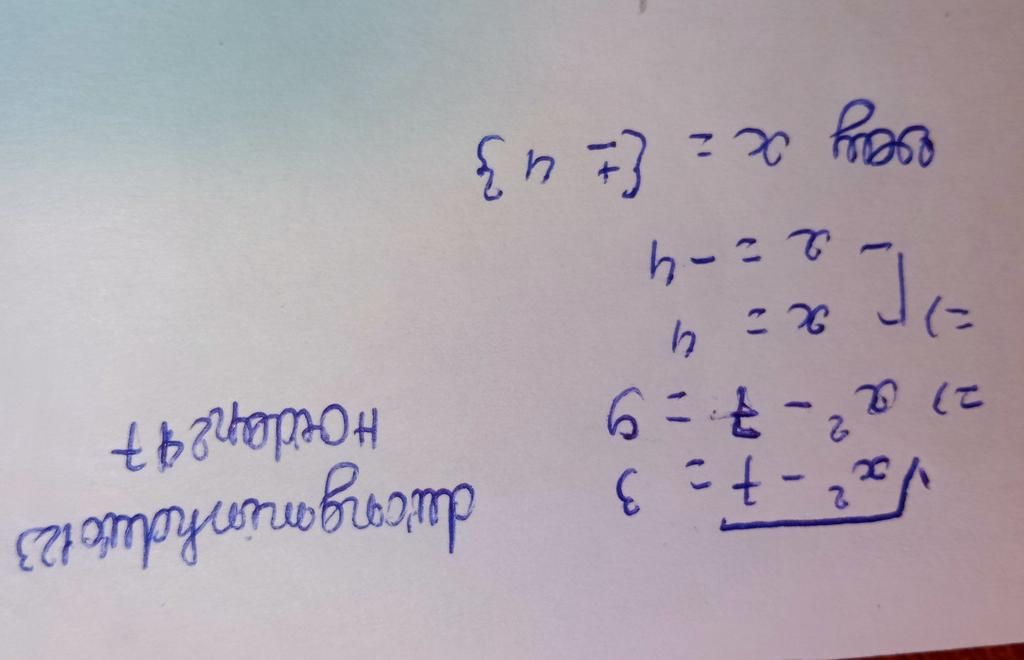 √x² - 7 = 3
=> x² - 7 = 9
=> [ x = 4
x = -4
vậy x = {± 4}
duongminhduc123
Hoidap247